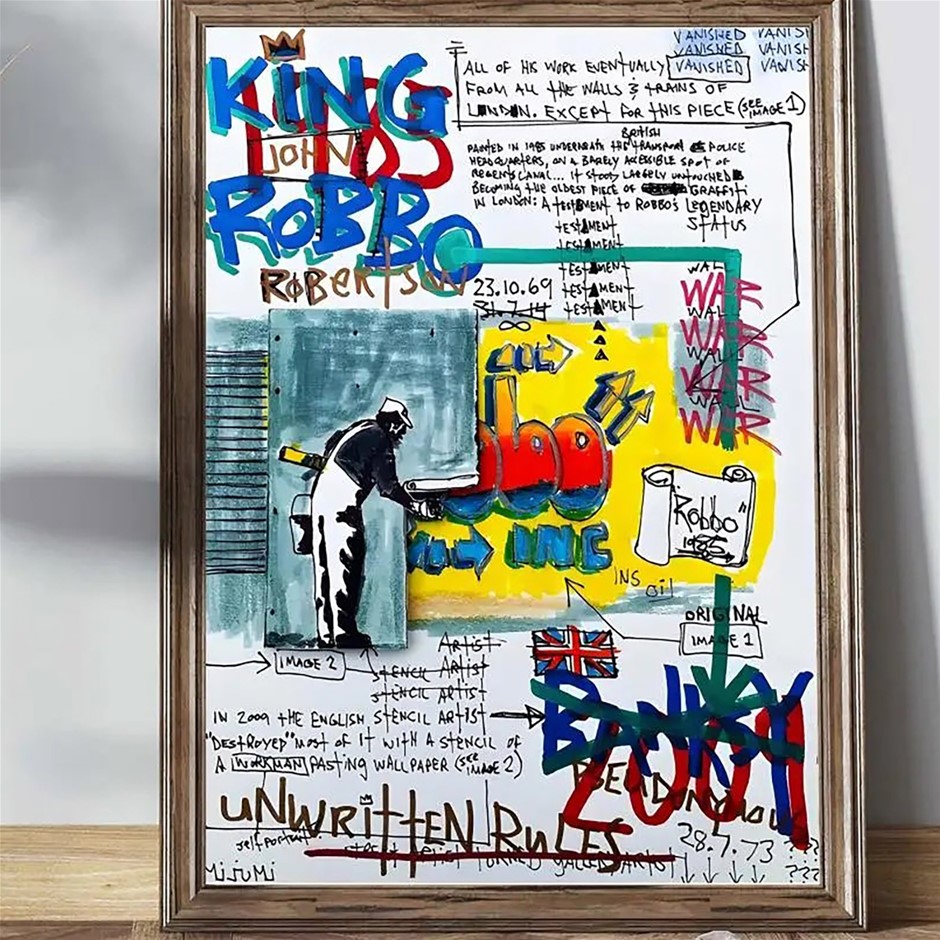 KING
JOHN
ROBBO
ROBERTSON
VANISHED VANISH
VANISHED VANISH
ALL OF HIS WORK EVENTUALLY VANISHED VANISH
FROM ALL THE WALLS & TRAINS OF
LONDON. EXCEPT FOR THIS PIECE (SEE IMAGE 1)
BRITISH
PAINTED IN 1985 UNDERNEATH THE TRANSPORT POLICE
HEADQUARTERS, ON A BARELY ACCESSIBLE SPOT OF
REGENTS CANAL... IT STOOD LARGELY UNTOUCHED
BECOMING THE OLDEST PIECE OF GRAFFITI
IN LONDON: A TESTEMENT TO ROBBO'S LEGENDARY
STATUS
TESTAMENT
TESTAMENT
TESTAMENT
TESTAMENT
TESTAMENT
23.10.69
31.7.14
∞
WALL
WAR
WALL
WAR
WALL
WAR
WALL
WAR
bbo
INC
"Robbo"
1985
INS OIL
ORIGINAL
IMAGE 1
IMAGE 2
ARTIST
STENCIL ARTIST
STENCIL ARTIST
IN 2009 THE ENGLISH STENCIL ARTIST
"DESTROYED" MOST OF IT WITH A STENCIL OF
A WORKMAN PASTING WALLPAPER (SEE IMAGE 2)
BANKSY
2009
PSEUDONYMOU
UNWRITTEN RULES
self portrait
28.7.73 ???
???
MiJuMi